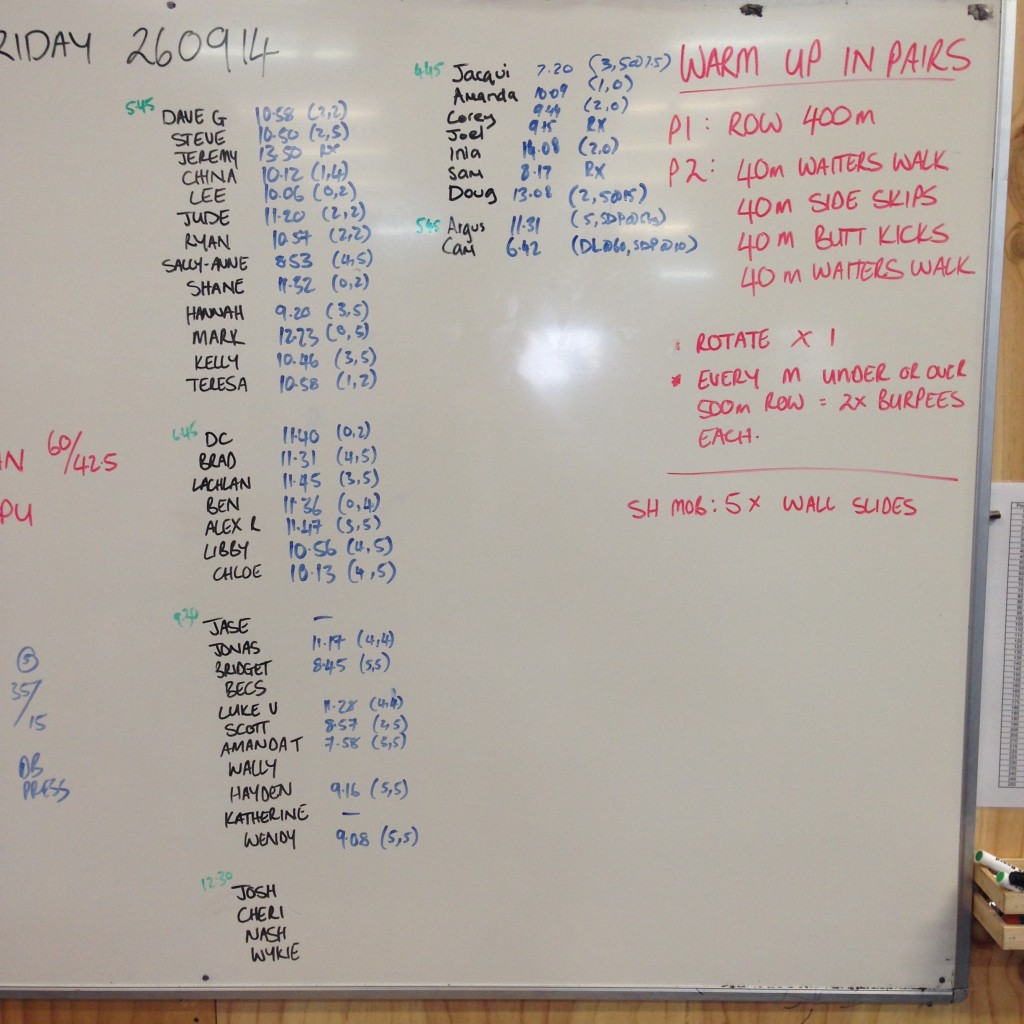 RIDAY 260914
5:45 DAVE G 10:58 (2,2)
STEVE 10:50 (3,5)
JEREMY 13:50 RX
CHINA 10:12 (1,4)
LEE 10:06 (0,2)
JUDE 11:20 (2,2)
RYAN 10:57 (2,2)
SALLY-ANNE 8:53 (4,5)
SHANE 11:52 (0,2)
HANNAH 9:20 (3,5)
MARK 12:23 (0,5)
KELLY 10:46 (3,5)
TERESA 10:58 (1,2)
6:45 DC 11:40 (0,2)
BRAD 11:31 (4,5)
LACHLAN 11:45 (3,5)
BEN 11:36 (0,4)
ALEX R 11:47 (3,5)
LIBBY 10:56 (4,5)
CHLOE 10:13 (4,5)
9:30 JASE —
JONAS 11:17 (4,4)
BRIDGET 8:45 (5,5)
BECS
LUKE V 11:28 (4,4)
SCOTT 8:57 (2,5)
AMANDA T 7:58 (5,5)
WALLY
HAYDEN 9:16 (5,5)
KATHERINE —
WENDY 9:08 (5,5)
12:30
JOSH
CHERI
NASH
WYKIE
4:45 Jacqui 7:20 (3,5@7.5)
Amanda 10:09 (1,0)
Corey 9:44 (2,0)
Joel 9:15 RX
Inia 14:08 (2,0)
Sam 8:17 RX
Doug 13:08 (2,5@15)
5:45 Angus 11:31
Cam 6:42
WARM UP IN PAIRS
P1: ROW 400m
P2: 40m WAITERS WALK
40m SIDE SKIPS
40m BUTT KICKS
40m WAITERS WALK
: ROTATE X 1
* EVERY M UNDER OR OVER
500m ROW = 2X BURPEES
EACH.
SH MOB: 5 X WALL SLIDES
N 60/42.5
PU
⑤
35/
/15
DB
PRESS